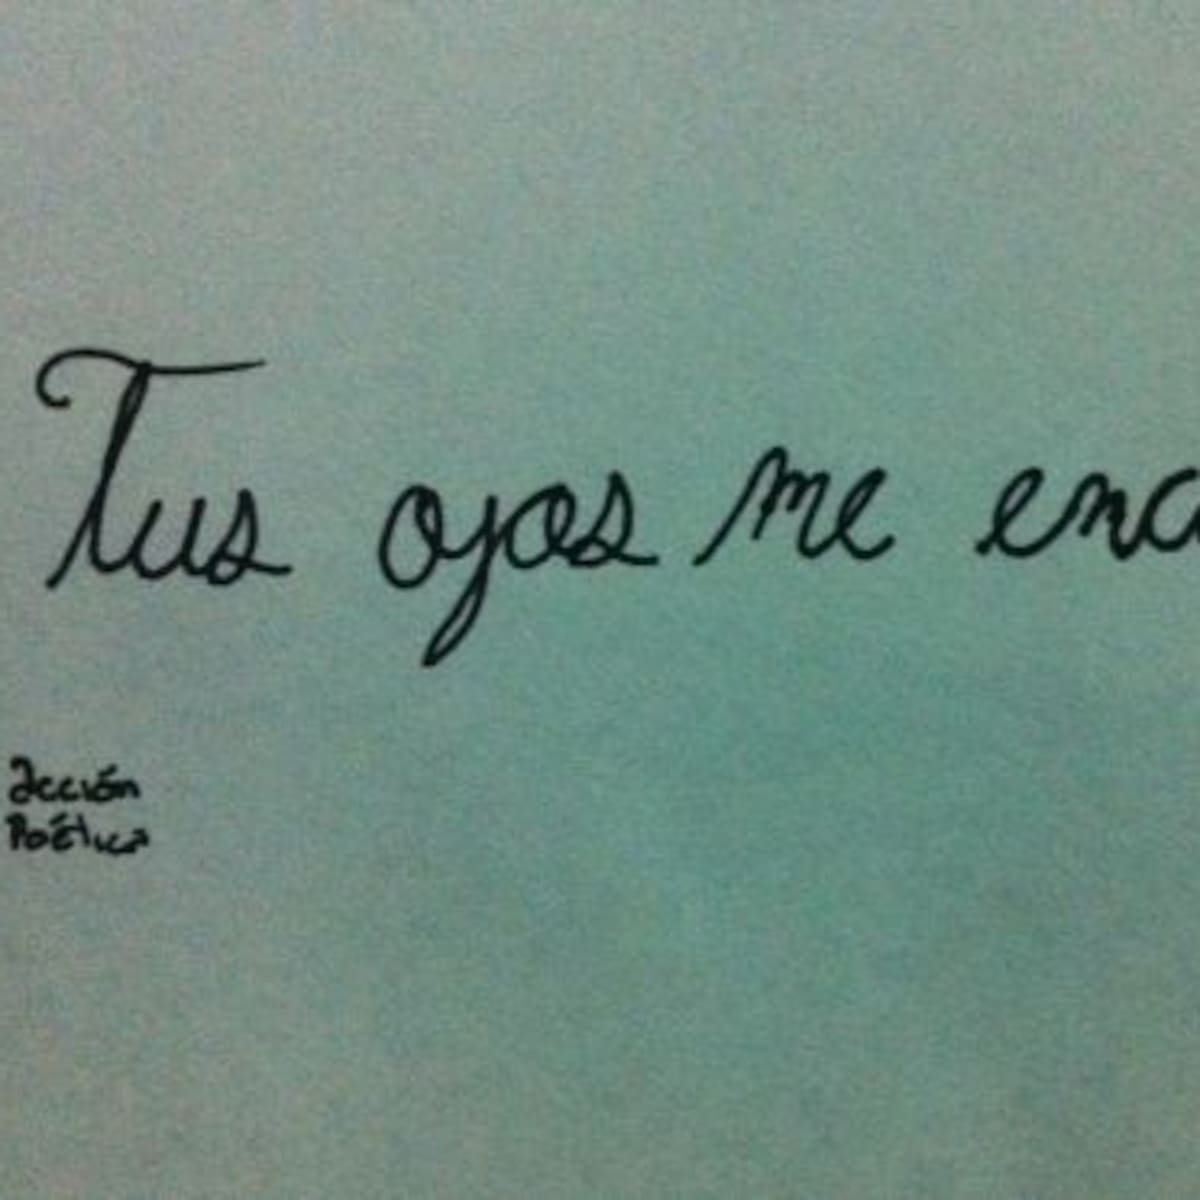 Tus ojos me enc
acción
Poética